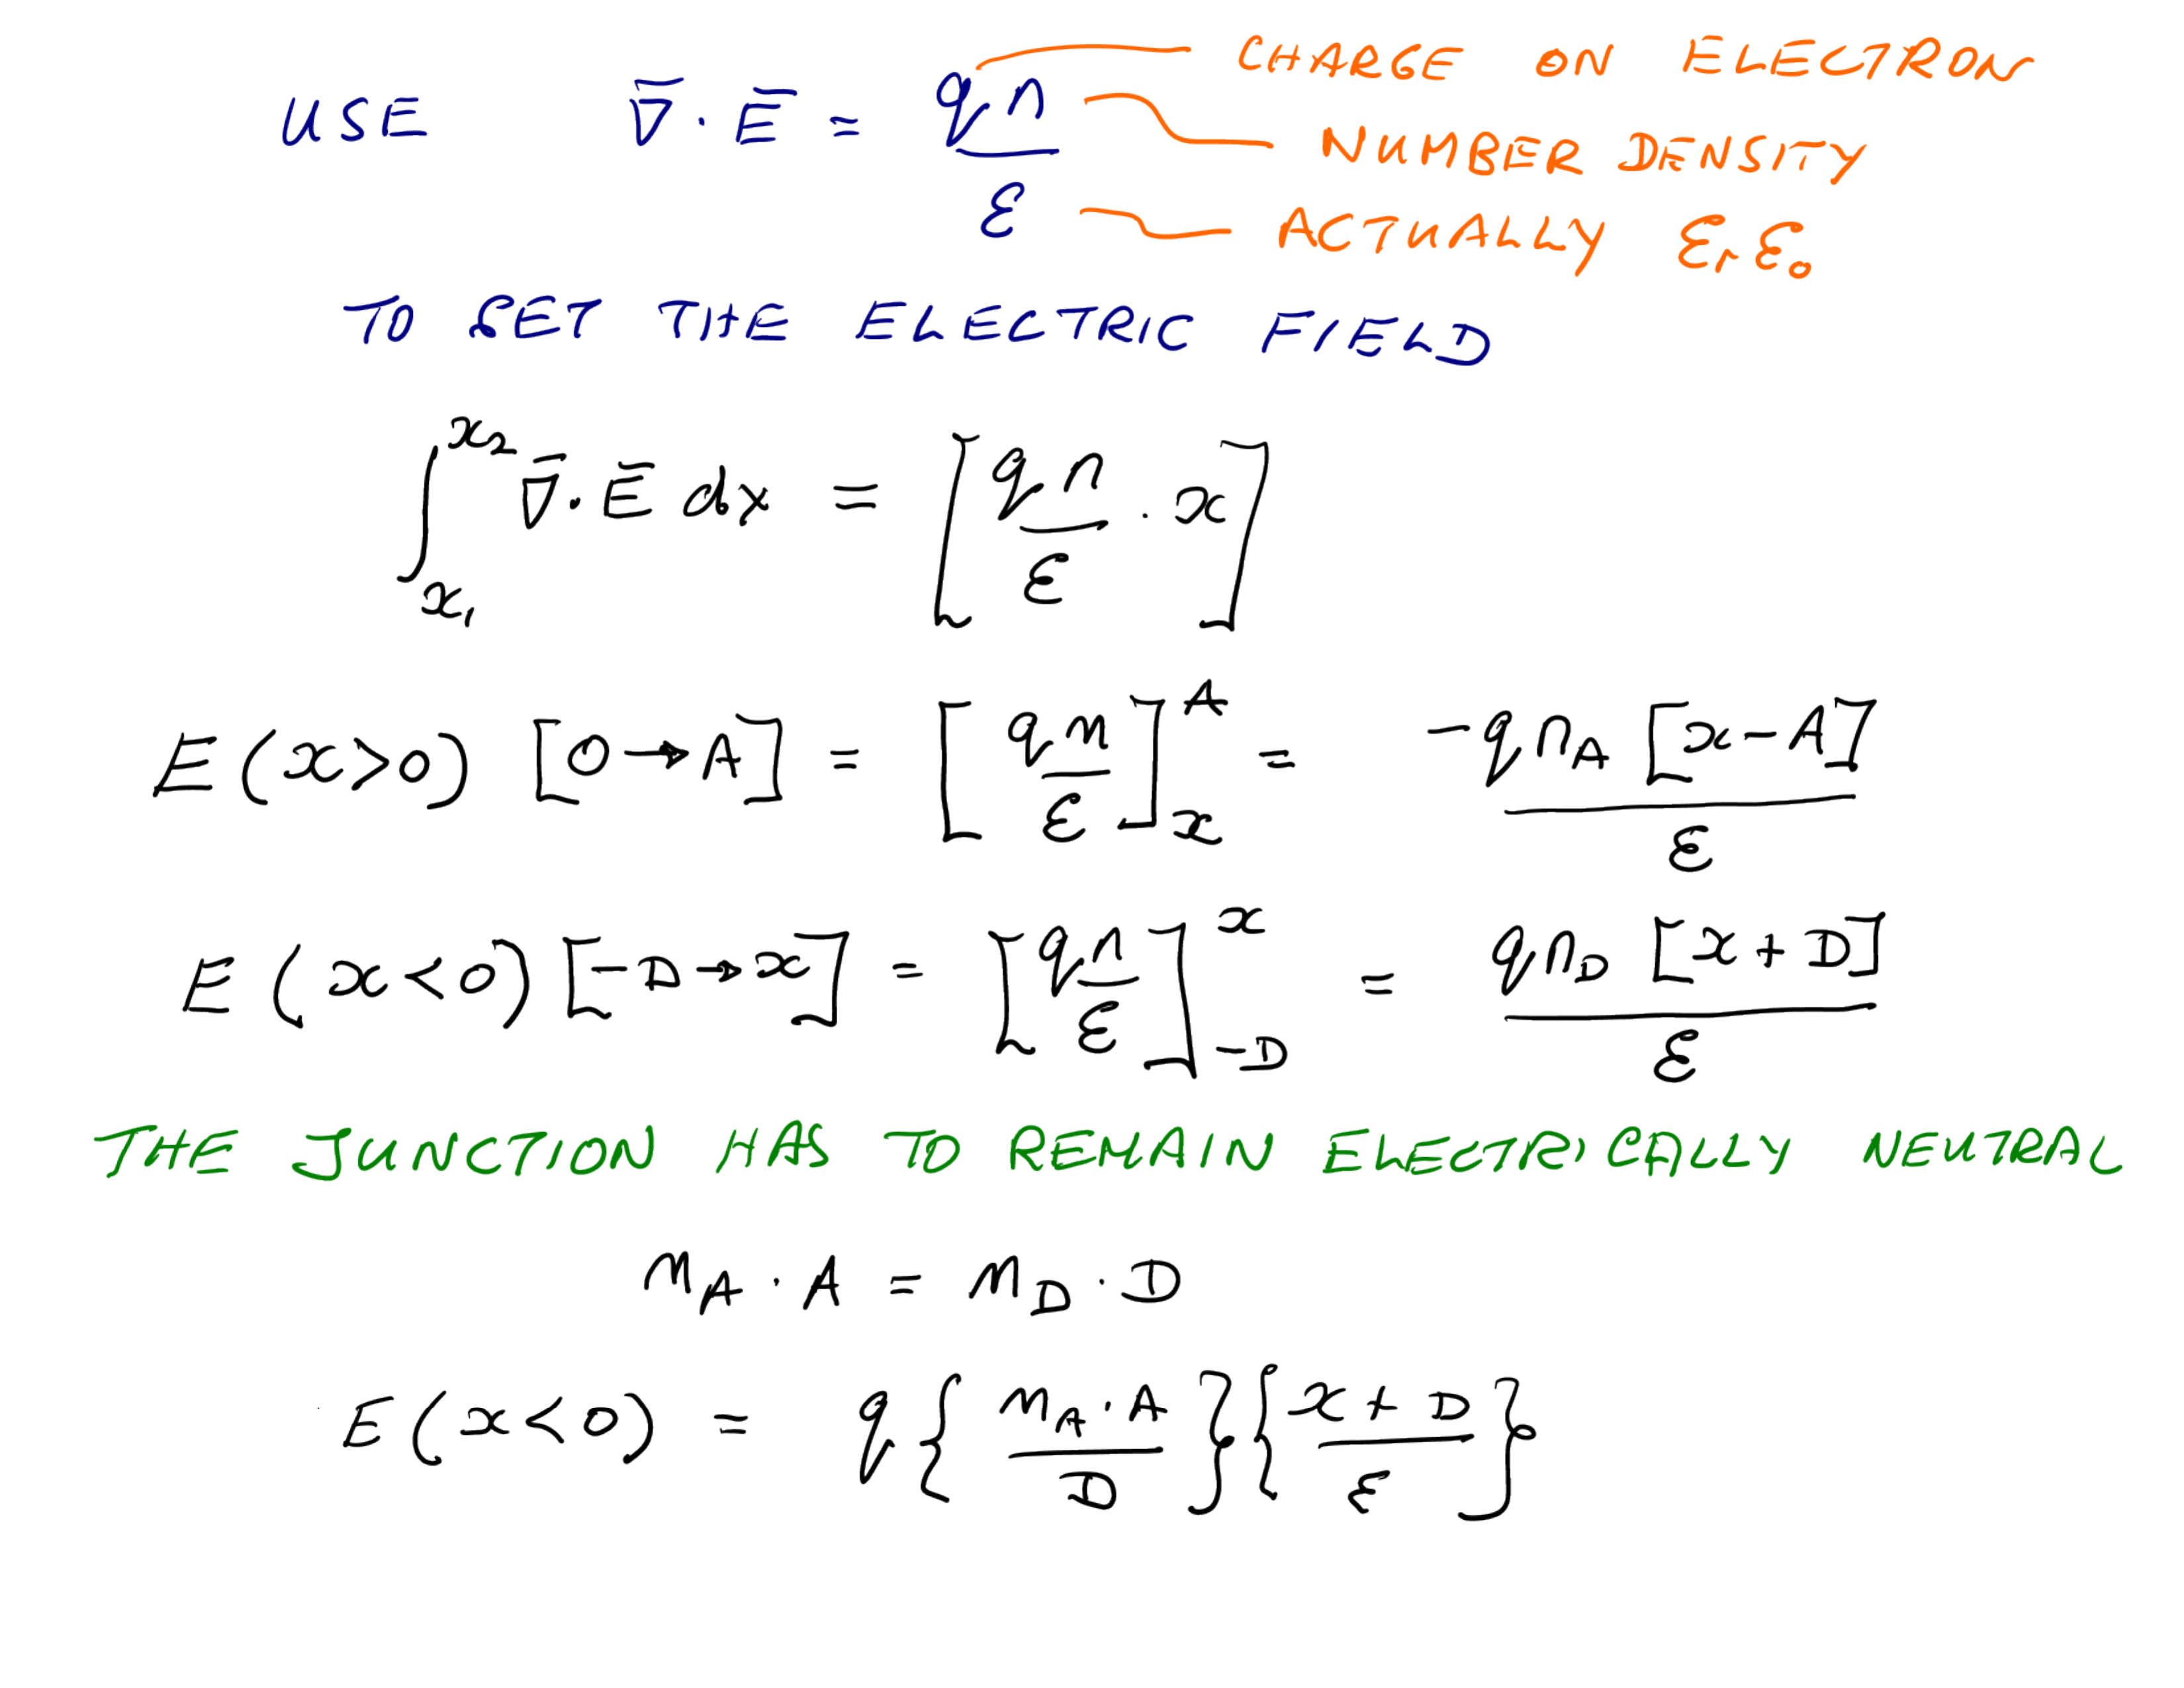 USE ∇̄·Ē = qn/ε
CHARGE ON ELECTRON
NUMBER DENSITY
ACTUALLY εᵣε₀
TO GET THE ELECTRIC FIELD
∫_{x₁}^{x₂} ∇̄·Ē dx = [qn/ε · x]
E(x>0) [0→A] = [qn/ε]_x^A = -qn_A[x-A]/ε
E(x<0) [-D→x] = [qn/ε]_{-D}^x = qn_D[x+D]/ε
THE JUNCTION HAS TO REMAIN ELECTRICALLY NEUTRAL
n_A·A = n_D·D
E(x<0) = q{n_A·A/D}{x+D/ε}